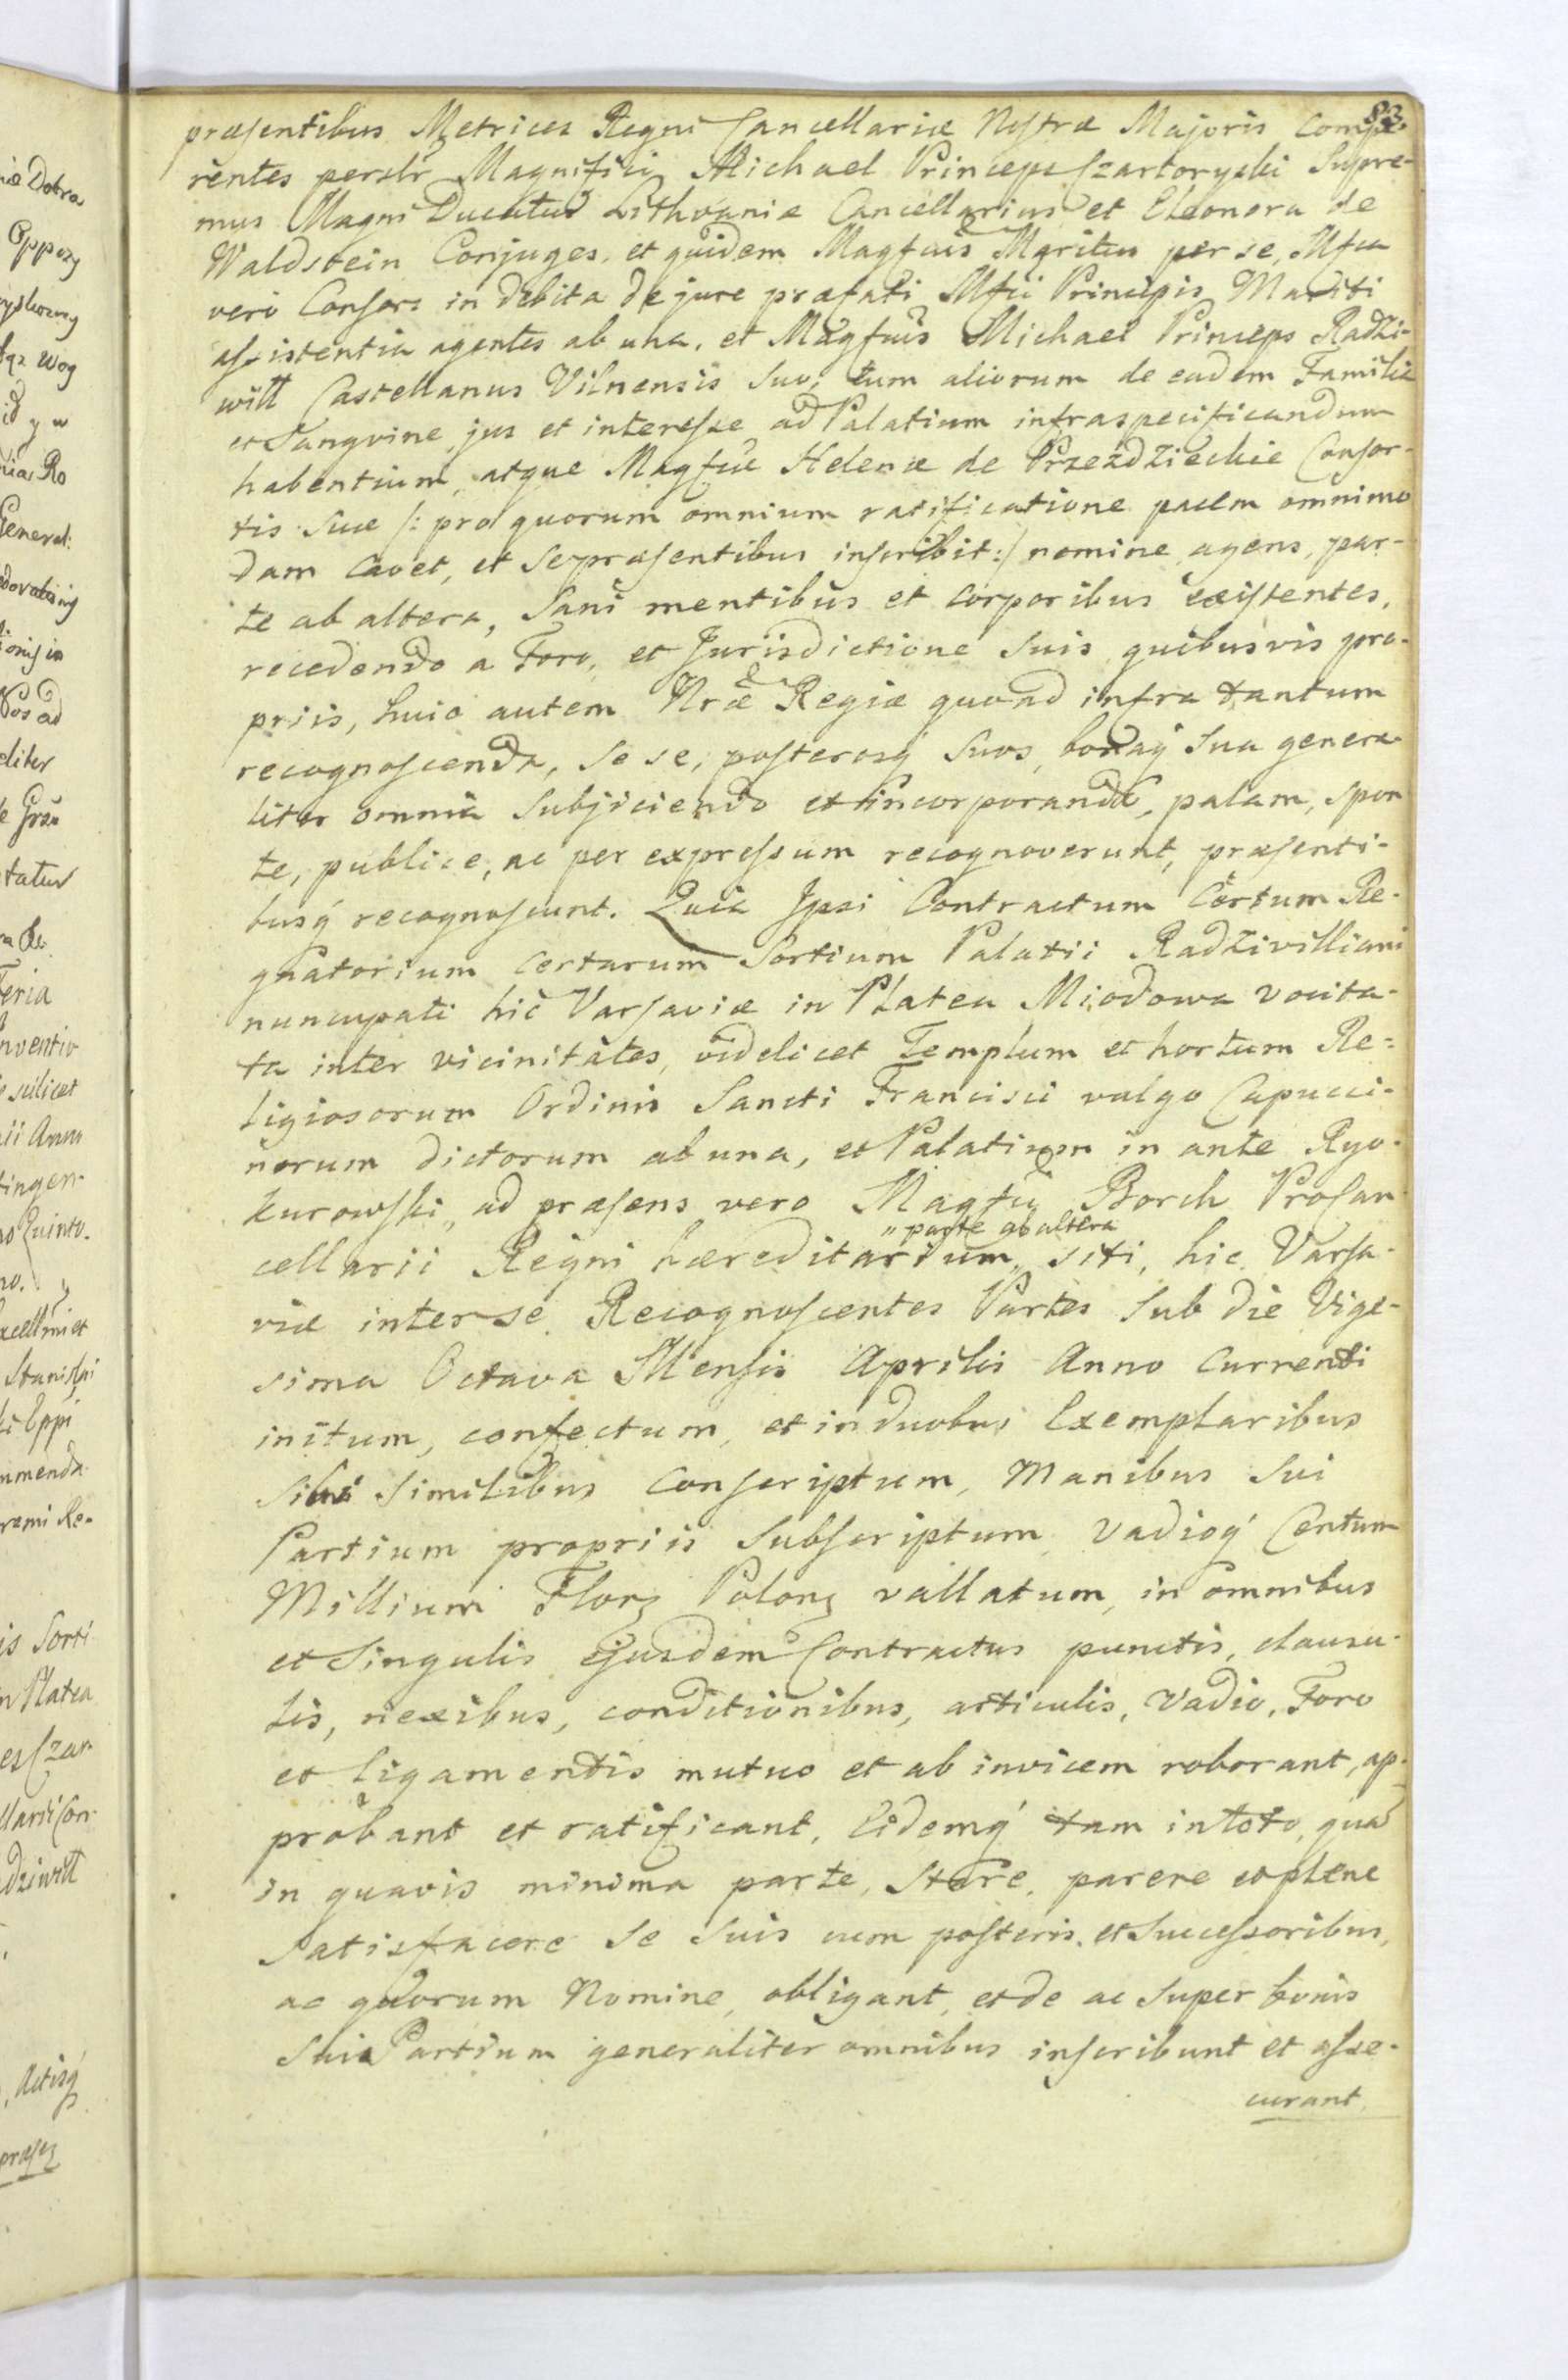 83.
præsentibus Metrices Regni Cancellariæ Nostræ Majoris Compa-
rentes persłr Magnifici Michael Princeps Czartoryski Supre-
mus Magni Ducatus Lithvaniæ Cancellarius et Eleonora de
Waldstein Conjuges, et quidem Magfcus Maritus per se, Mfca
vero Consors in debita de jure præfati Mfci Principis Mariti
assistentia agentes ab una, et Magfcus Michael Princeps Radzi-
wiłł Castellanus Vilnensis Suo, tum aliorum de eadem Familia
et Sangvine, jus et interesse ad Palatium infraspecificandum
habentium, atque Magfcæ Helenæ de Przezdzieckie Consor-
tis Suæ /: pro quorum omnium ratificatione pacem omnimo
dam Cavet, et Se præsentibus inscribit :/ nomine agens, par-
te ab altera, Sani mentibus et Corporibus existentes,
recedendo a Foro, et Jurisdictione Suis quibusvis pro-
priis, huic autem Nræ Regiæ quoad infra tantum
recognoscenda, Se se, posterosq́ Suos, bonaq́ Sua genera-
liter omnia Subjiciendo et incorporando, palam, spon
te, publice, ac per expressum recognoverunt, præsenti-
busq́ recognoscunt. Quia Ipsi Contractum Certum Re-
gnatorium Certarum Sortium Palatii Radziwilliani
nuncupati hic Varsaviæ in Platea Miodowa vocita-
ta inter vicinitates, videlicet Templum et hortum Re-
ligiosorum Ordinis Sancti Francisci vulgo Capucci-
norum dictorum ab una, et Palatium in ante Ryo-
kurowski, ad præsens vero Magfci Borch Procan
"parte ab altera
cellarii Regni hæreditarium,, siti, hic Varsa-
viæ inter se Recognoscentes Partes Sub die Vige-
sima Octava Mensis Aprilis Anno Currenti
initum, confectum, et in duobus Exemplaribus
Sibi Similibus Conscriptum, Manibus Sui
Partium propriis Subscriptum, Vadioq́ Centum
Millium Flor Polon vallatum, in omnibus
et Singulis ejusdem Contractus punctis, clausu-
lis, nexibus, conditionibus, articulis, Vadio, Foro
et ligamentis mutuo et ab invicem roborant, ap-
probant et ratificant, Eidemq́ tam in toto, qua
in quavis minima parte, Stare, parere et plene
Satisfacere Se Suis cum posteris et Successoribus,
ac quorum Nomine, obligant, et de ac Super bonis
Suis Partium generaliter omnibus inscribunt et asse-
curant